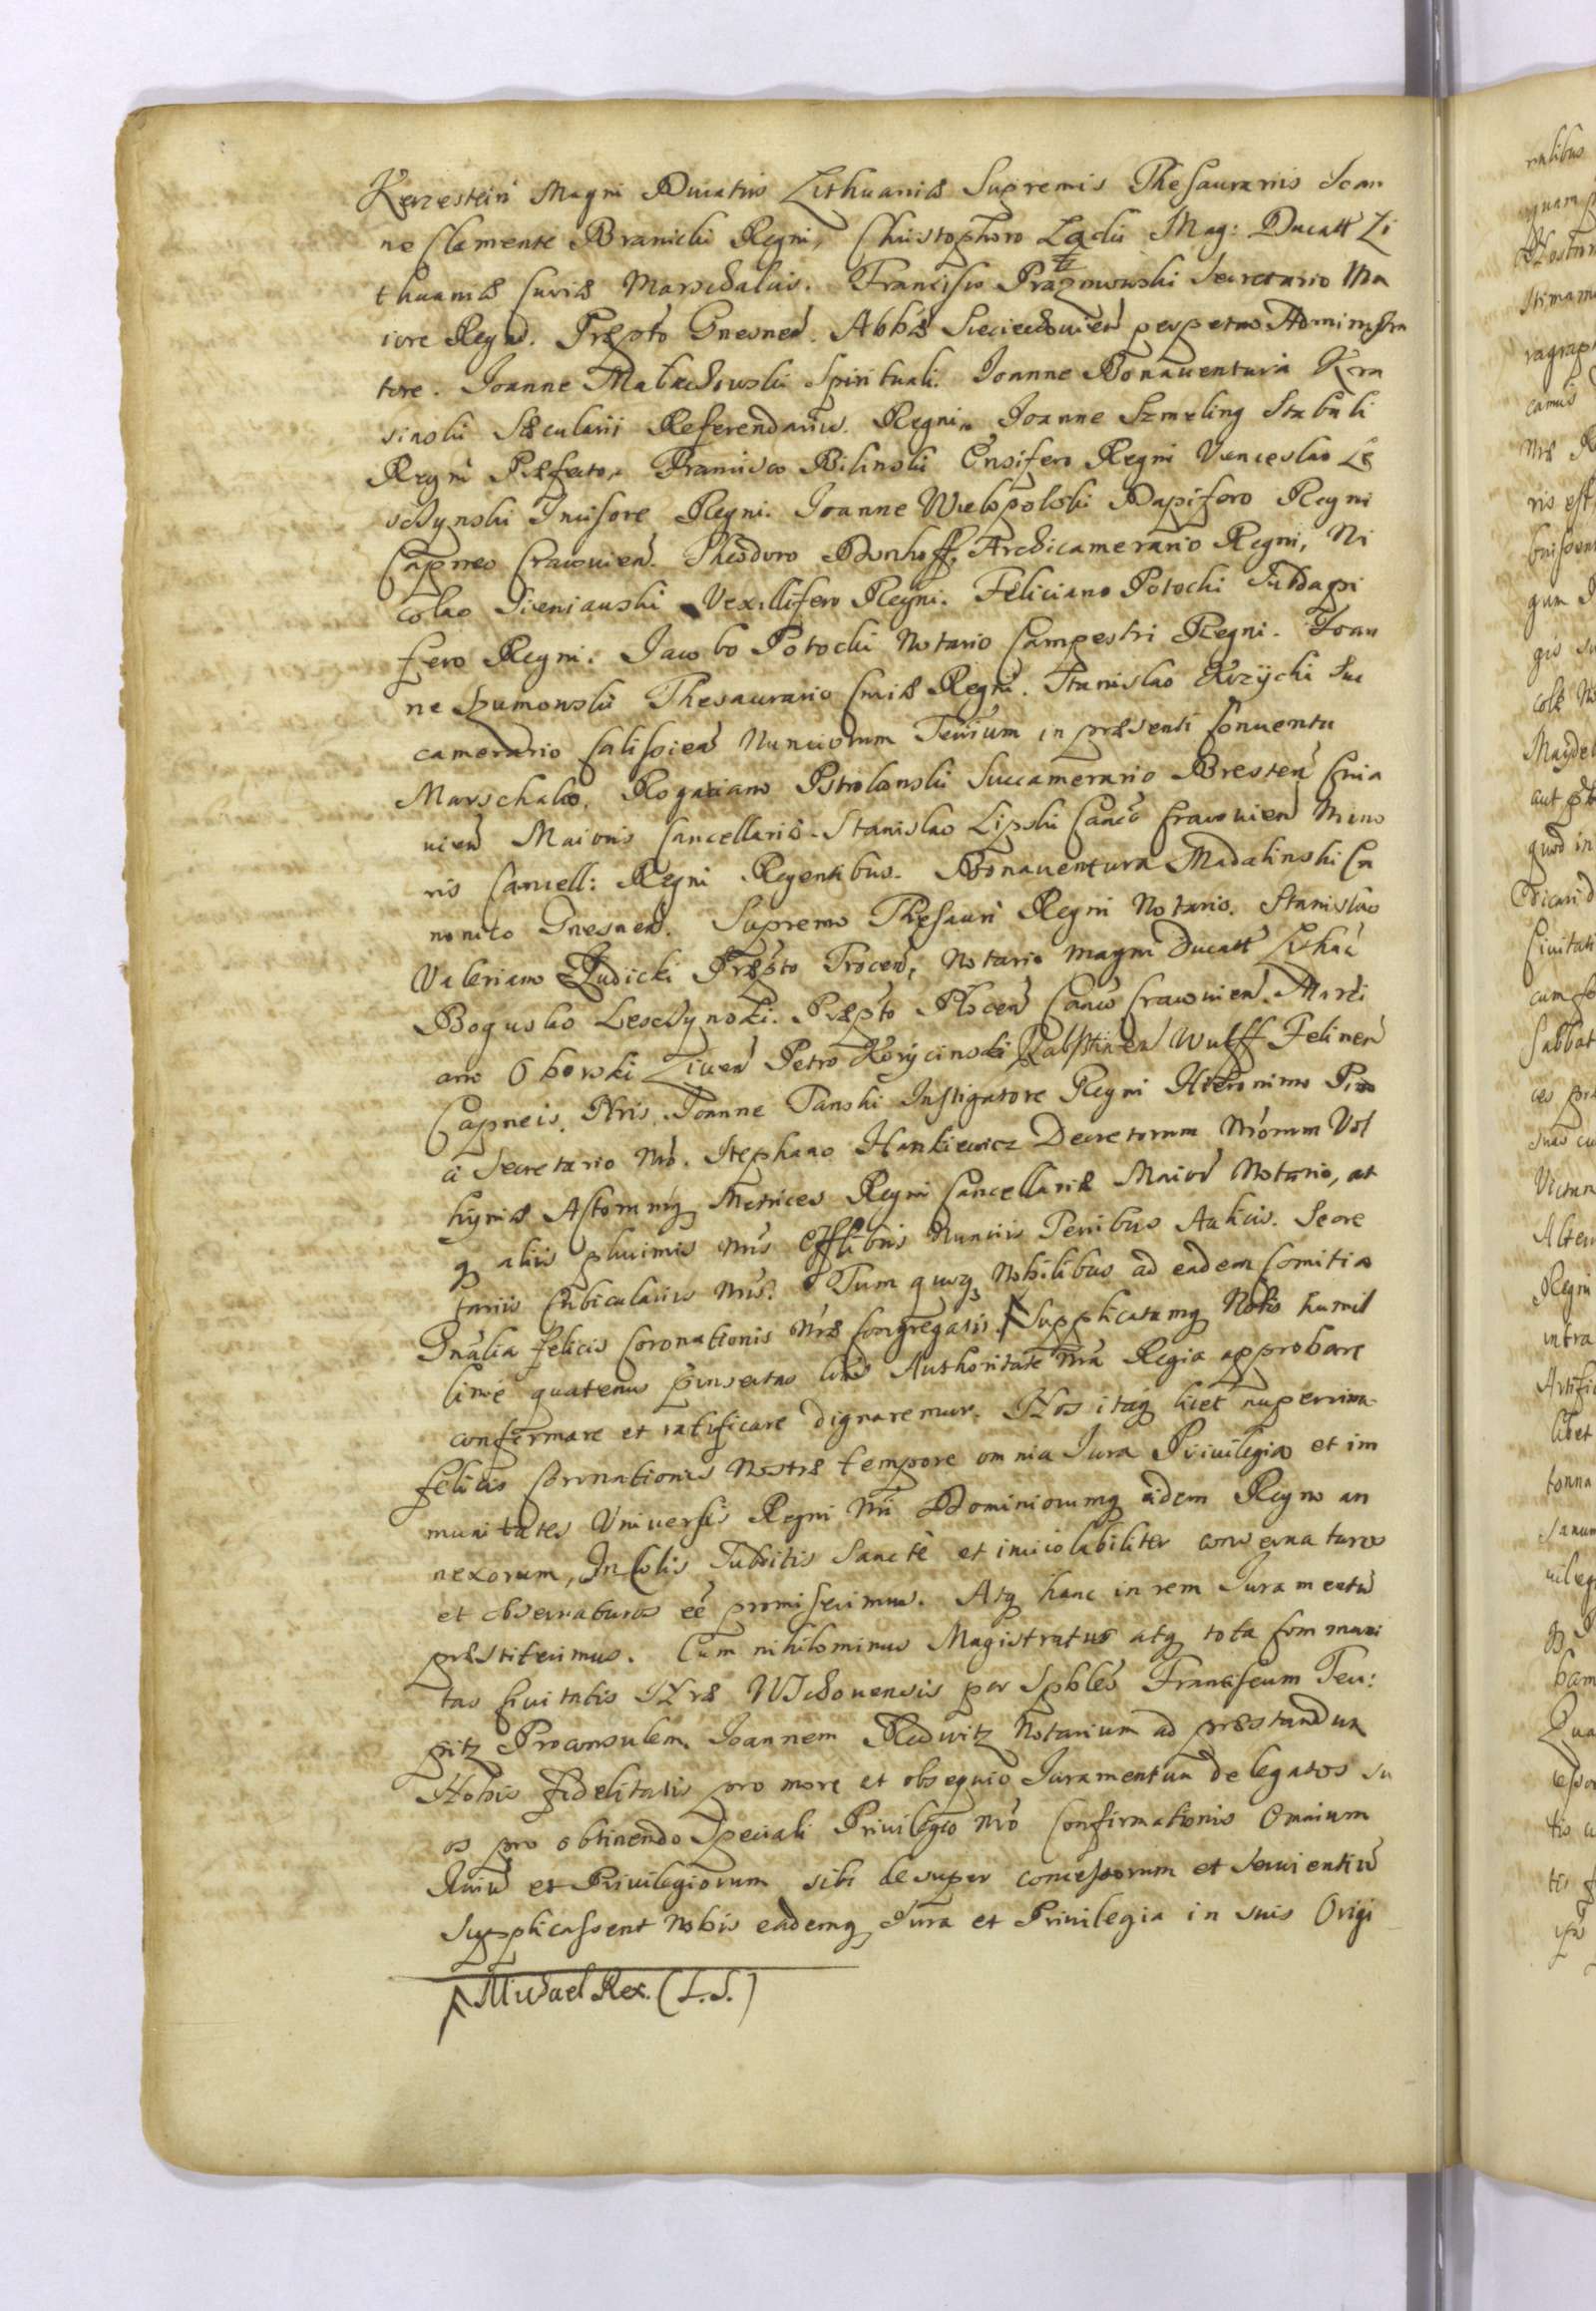 Kerzestein Magni Ducatus Lithuaniæ Supremis Thesaurariis Ioan
ne Clemente Branicki Regni, Christophoro Mag: Ducatt Li
thuaniæ Curiæ Marschalcis. Francisco Prazmowski Secretario Ma
iore Regni. Præpto Gnesnen. Abbæ Sieciechovien perpetuo Administra
tore. Joanne Małachowski Spirituali. Joanne Bonaventura Kra
sinski Sæculari Referendariis Regni. Joanne Szmeling Stabuli
Regni Præfecto. Francisco Bilinski Ensifero Regni Venceslao Le
schynski Incisore Regni. Joanne Wielopolski Dapifero Regni
Capneo Cracovien. Theodoro Dönhoff, Archicamerario Regni, Ni
colao Sieniauski Vexillifero Regni. Feliciano Potocki Subdapi
fero Regni. Iacobo Potocki Notario Campestri Regni. Joan
ne Szumowski Thesaurario Curiæ Regni. Stanislao Krzycki Suc
camerario Calissien Nunciorum Terrium in præsenti Conventu
Marschalco. Rogatiano Pstrokonski Succamerario Bresten Cuia
vien Maioris Cancellariæ. Stanislao Lipski Canco Cracovien Mino
ris Cancell: Regni Regentibus. Bonaventura Madalinski Ca
nonico Gnesnen. Supremo Thesauri Regni Notario. Stanislao
Valeriano Judicki Præpto Trocen, Notario Magni Ducatt Lithac
Boguslao Leschynski. Præpto Plocen Canco Cracovien. Marci
ano Oborski Liven Petro Korycinski Rabsstinen Wulff Felinen
Capneis Nris. Joanne Tanski Instigatore Regni Hieronimo Pino
ci Secretario Nro. Stephano Hankiewicz Decretorum Nrorum Vol
hyniæ Actorumq Metrices Regni Cancellariæ Maior Notario, at
q aliis plurimis Nris Offlibus Nunciis Terribus Aulicis. Secre
tariis Cubiculariis Nris. Tum quoq Nobilibus ad eadem Comitia
Gnalia felicis Coronationis Nræ Congregatis. Supplicatumq Nobis humil
lime quatenus pinsertas lras Authoritate Nra Regia approbare
confirmare et ratificare dignaremur. Nos itaq licet nuperrime
felicis Coronationis Nostræ tempore omnia Jura Privilegia et im
munitates Universis Regni Nri Dominiorumq eidem Regno an
nexorum, Incolis Subditis Sancte et inviolabiliter conservaturos
et observaturos eé promiserimus. Atq hanc in rem Iuramentū
præstiterimus. Cum nihilominus Magistratus atq tota Communi
tas Civitatis Nræ Wschovensis per Spbles Franciscum Teu:
pitz Proconsulem. Joannem Redwitz Notarium ad præstandum
Nobis fidelitatis pro more et obsequio Juramentum delegatos su
os pro obtinendo Speciali Privilegio Nro Confirmationis Omnium
Juriū et Privilegiorum sibi desuper concessorum et servientiū
Supplicassent Nobis eademq Jura et Privilegia in suis Origi
Michael Rex. (L.S.)